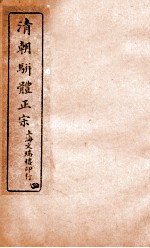 清朝駢體正宗
上海文瑞樓印行
四